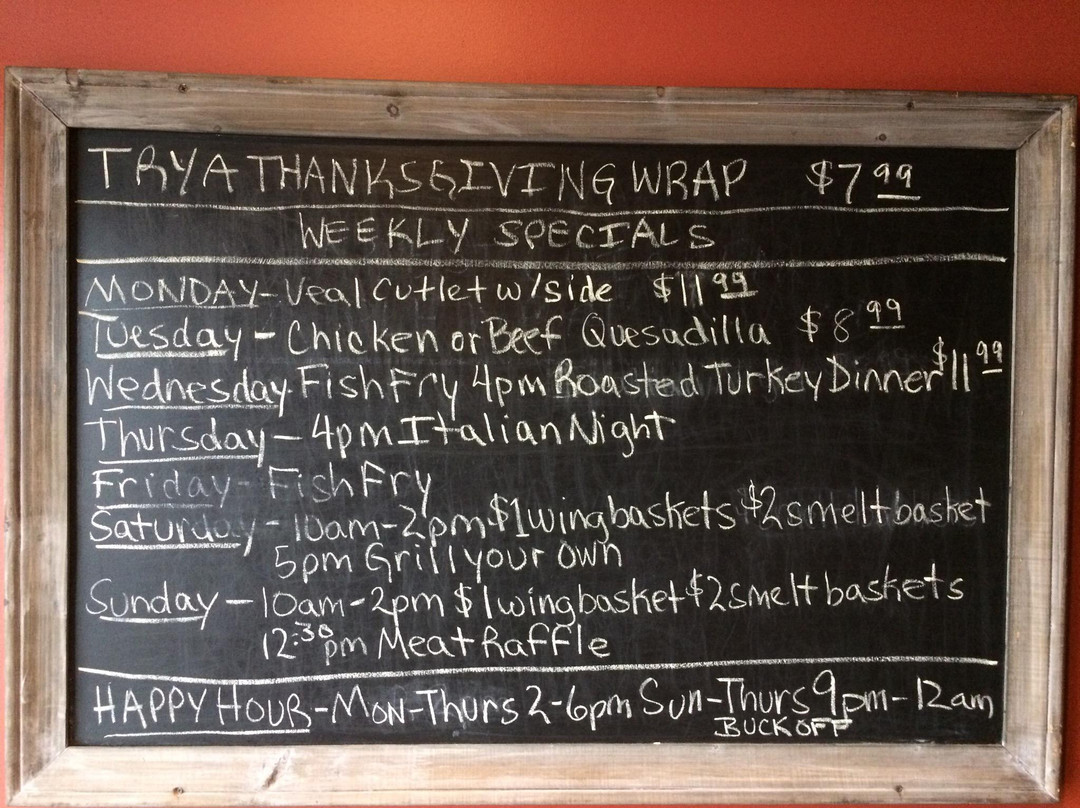 TRY A THANKSGIVING WRAP $7 99
WEEKLY SPECIALS
MONDAY - Veal Cutlet w/side $11 99
Tuesday - Chicken or Beef Quesadilla $8 99
Wednesday - Fish Fry 4pm Roasted Turkey Dinner $11 99
Thursday - 4pm Italian Night
Friday - Fish Fry
Saturday - 10am-2pm $1 wing baskets $2 smelt basket
5pm Grill your own
Sunday - 10am-2pm $1 wing basket $2 smelt baskets
12:30pm Meat Raffle
HAPPY HOUR - Mon-Thurs 2-6pm Sun-Thurs 9pm-12am
BUCK OFF